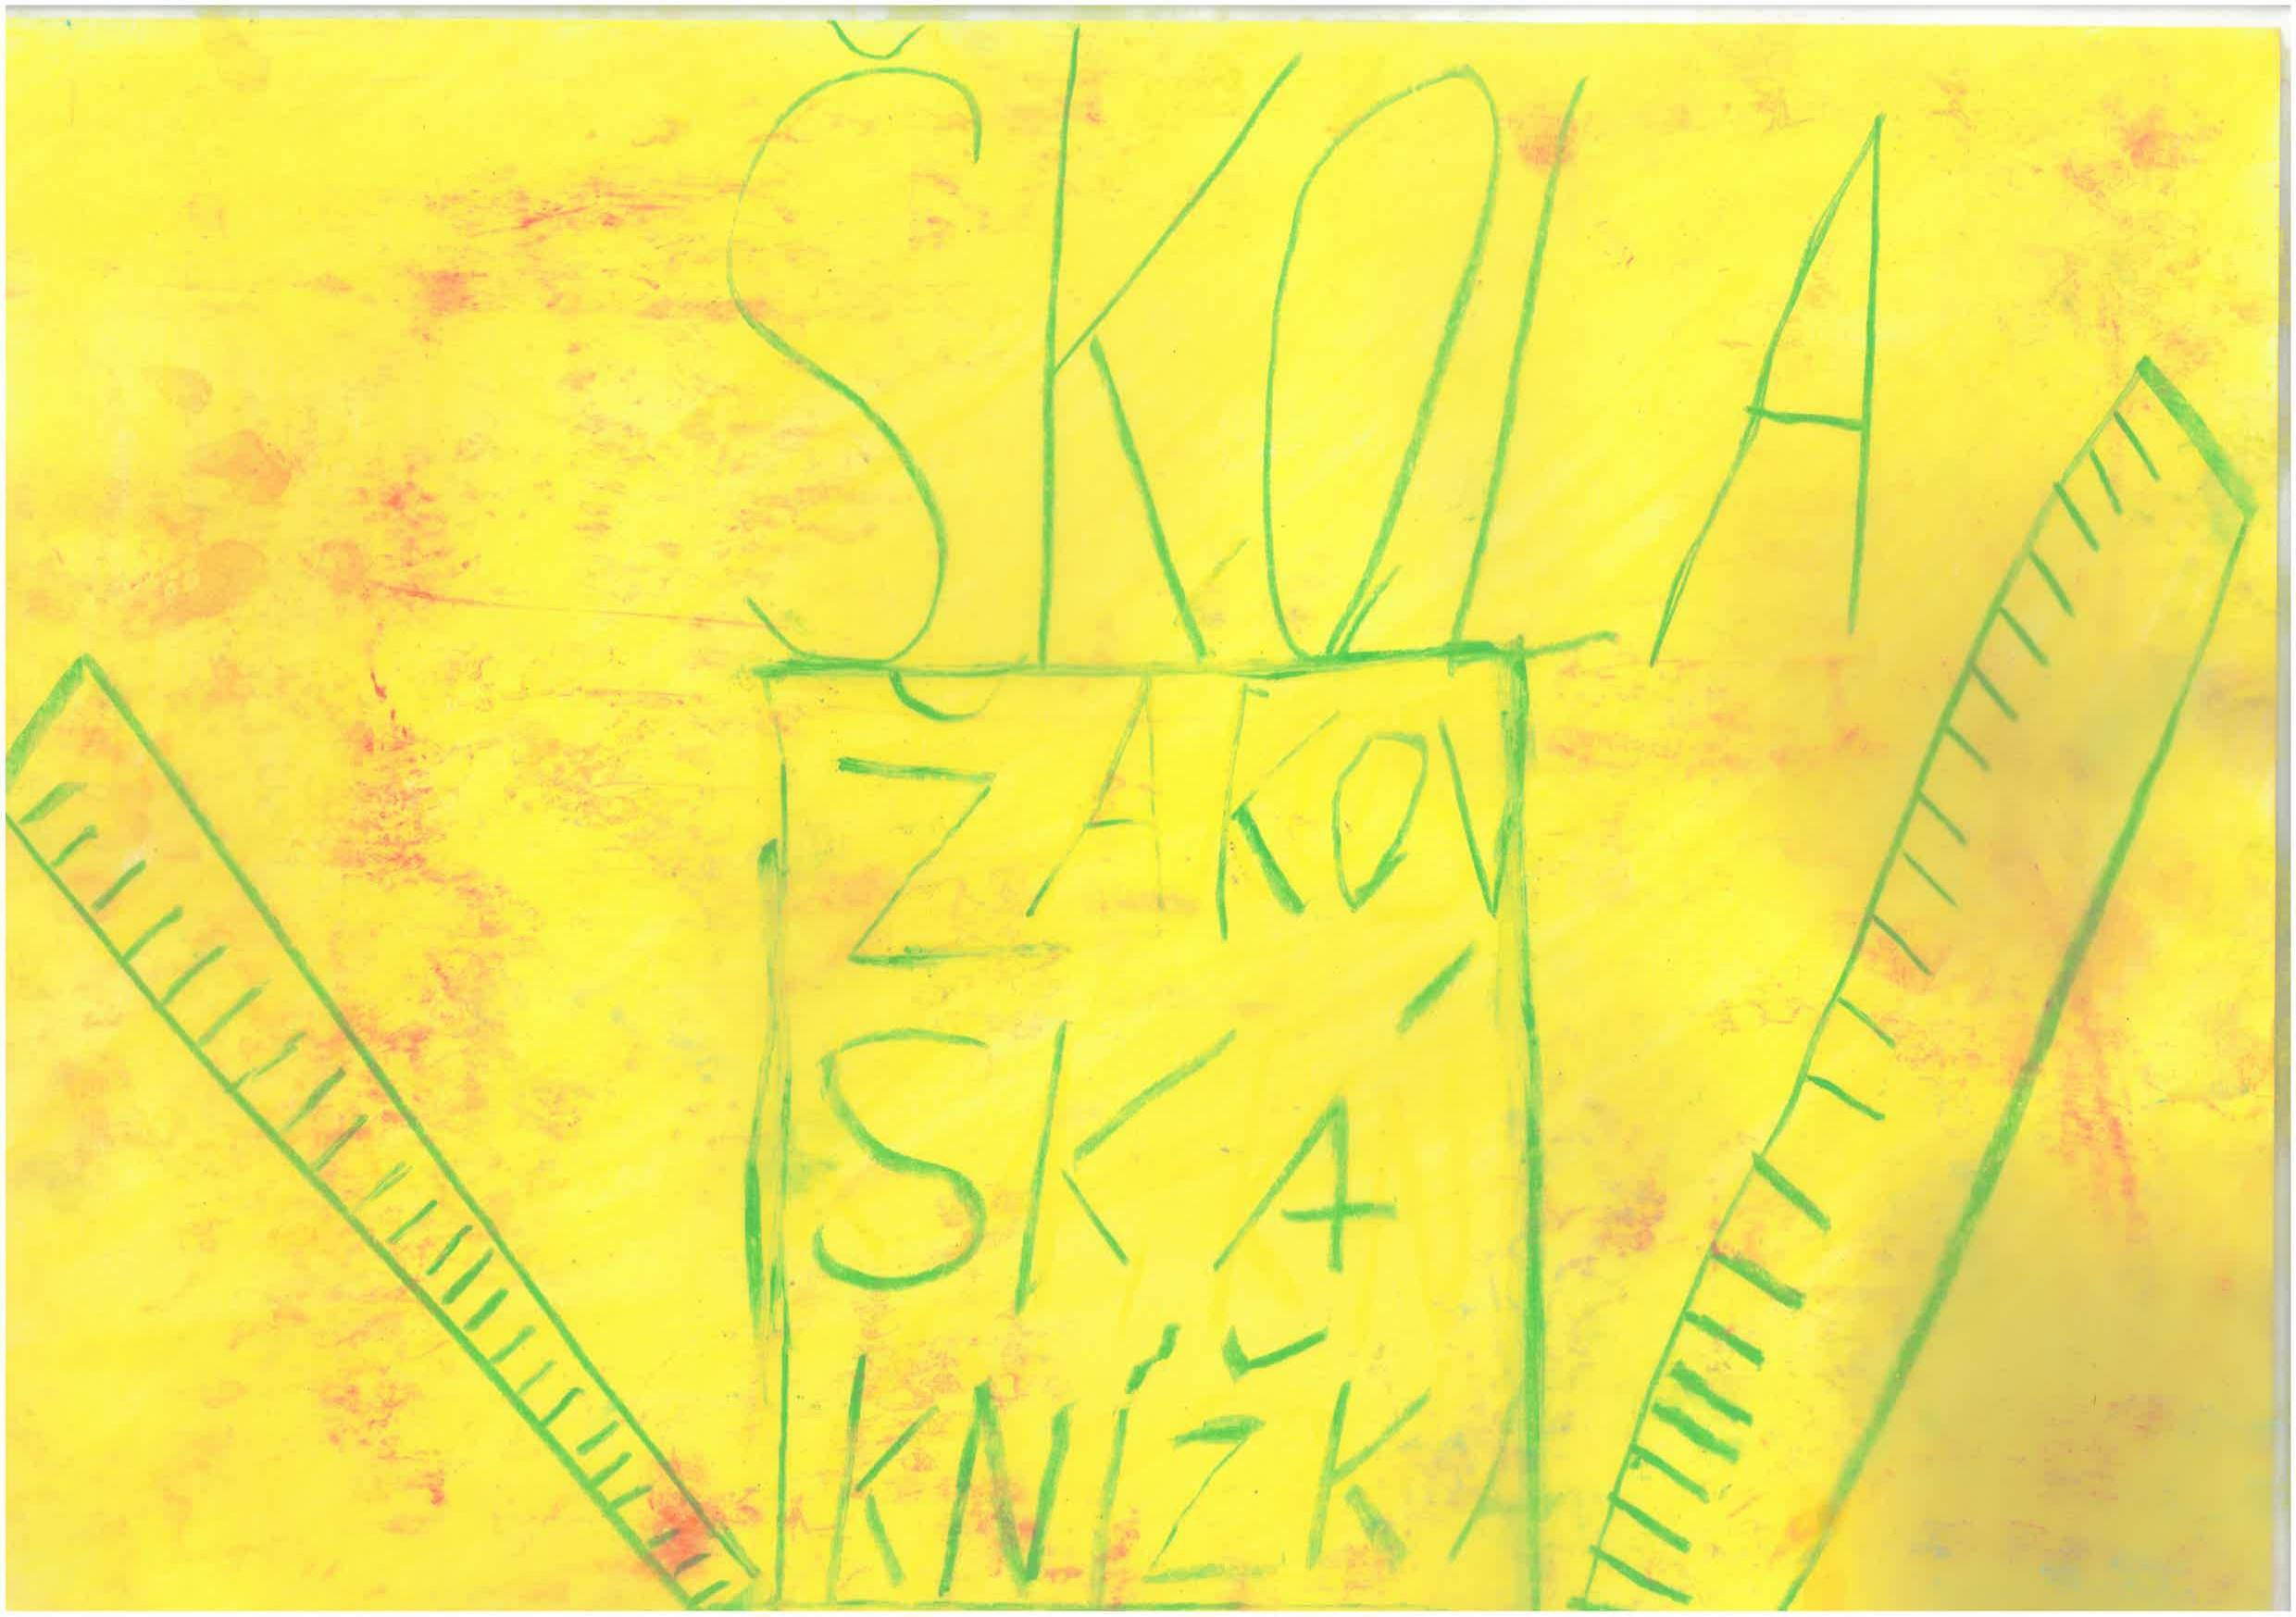 ŠKOLA
ŽAKOV
SKÁ
KNÍŽKA